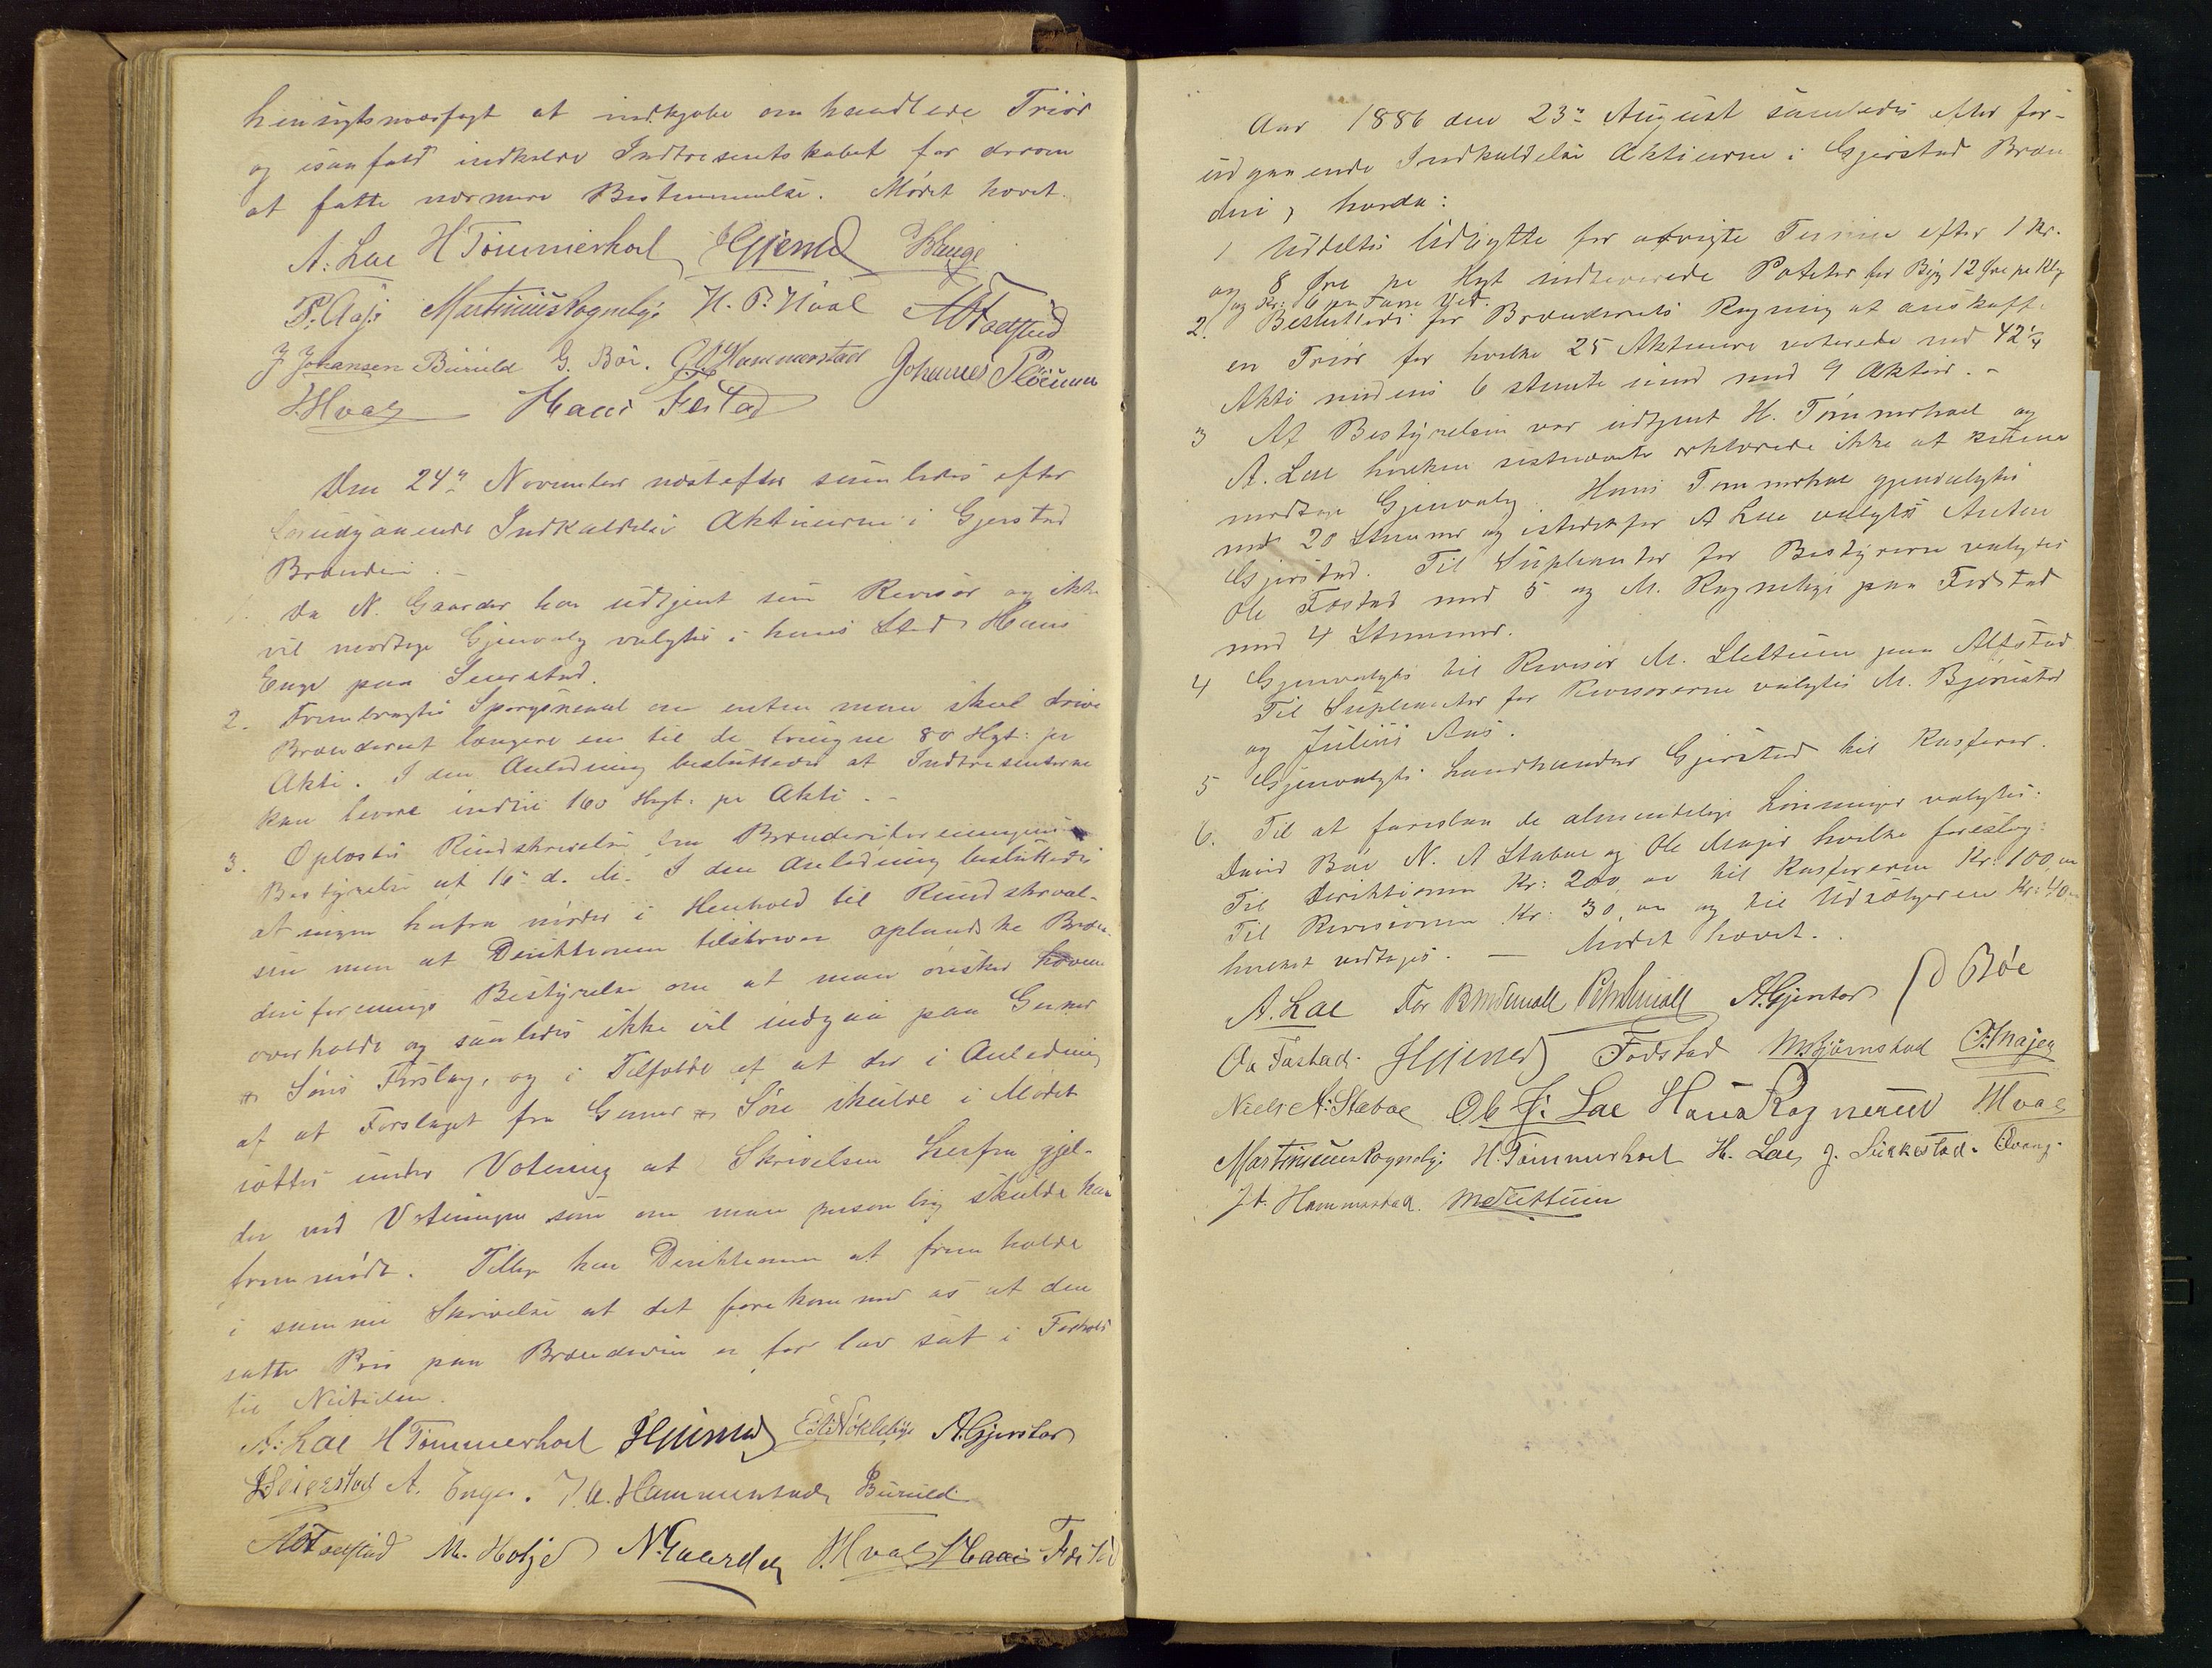 hensigtsmæssigt at indkjøbe omhandlede Triør
og isaafald indkalde Indtresentskabet for derom
at fatte nærmere Bestemmelse. Mødet hævet.
A. Lae H Tømmerhol HGjerna Hauge
P. Aass Martinius Rognelye H. P. Hval
J Johansen Buruld G. Böe. Hammerstad Johannes
J. Hval Hans Festad
Den 24de November næstefter samledes efter
forudgaaende Indkaldelse Aktierne i Gjerstad
Brænderi. -
1. Da N. Gaarder har udtjent som Revisor og ikke
vil modtage Gjenvalg valgtes i hans Sted Hans
Enge paa Seierstad.
2. Frembragtes Spørgsmaal om enten man skal drive
Brænderiet længere en til de tvungne 80 Hgt: pr
Aktie. I den Anledning besluttedes at Indtresenterne
kan levere indtil 160 Hgt: pr Aktie. -
3. Oplæstes Rundskrivelse fra Brænderiforeningens
Bestyrelse af 16de d. M. I den Anledning besluttedes
at ingen herfra møder i Henhold til Rundskrivel-
sen men at Direktionen tilskriver oplandske Bræn-
deriforenings Bestyrelse om at man ønsker
overholdt og saaledes ikke vil indgaa paa Gunnar
& Søns Forslag, og i Tilfælde af at der i Anledning
af at Forslaget fra Gunnar & Søn skulde i Mødet
sættes under Votering at Skrivelsen herfra gjel-
der ved Voteringen som om man personlig skulde have
fremmødt. Tillige har Direktionen at fremholde
i samme Skrivelse at det forekommer os at den
satte Pris paa Brændevin er for lav sat i Forhold
til Nutiden.
A. Lae H Tømmerhol HGjerna E. Nøkleby A. Gjerstad
Seierstad A. Enger. J. A. Hammerstad Buruld
M. Holje N. Gaarder J. Hval Hans Festad
Aar 1886 den 23de August samledes efter for-
udgaaende Indkaldelse Aktierne i Gjerstad Bræn
deri, hvorda:
1 Uddeltes Udbytte for afvigte Termin efter 1 Kr.
og 8 Øre pr Hgt indleverede Poteter for Byg 12 Øre pr Klg
og Kr: 6 pr Favn Ved.
2. Besluttedes for Brænderiets Regning at anskaffe
en Triør for hvilke 25 Aktieeiere voterede med 42 1/4
Aktie medens 6 stemte imod med 9 Aktier. -
3 Af Bestyrelsen var udtjent H. Tømmerhol og
A. Lae hvilken sistnævnte erklærede ikke at kunne
modtage Gjenvalg. Hans Tømmerhol gjenvalgtes
med 20 Stemmer og istedetfor A Lae valgtes Anton
Gjerstad. Til Suplianter for Bestyrerne valgtes
Ole Fostad med 5 og M. Rognelye paa Fodstad
med 4 Stemmer.
4 Gjenvalgtes til Revisor M. Slettum paa Alfstad
Til Suplianter for Revisorerne valgtes M. Bjørnstad
og Julius Aas.
5 Gjenvalgtes Landhandler Gjerstad til Kasserer.
6. Til at foreslaa de almindelige Lønninger valgtes:
David Böe N. A Stabae og Ole Majer hvilke foreslog:
Til Direktionen Kr: 200, og til Kassereren Kr: 100,
Til Revisionen Kr: 30, og til Udsælgeren Kr: 40
hvilket vedtoges. - Mødet hævet.
A. Lae For A. Gjerstad D Böe
Ole Fostad. HGjerna Fodstad M Bjørnstad O. Majer
Niels A. Stabae Ole J. Lae Hans Rognerud J. Hval
Martinius Rognelye H. Tømmerhol H. Lae J. Sukkestad.
J A. Hammerstad. M Slettum